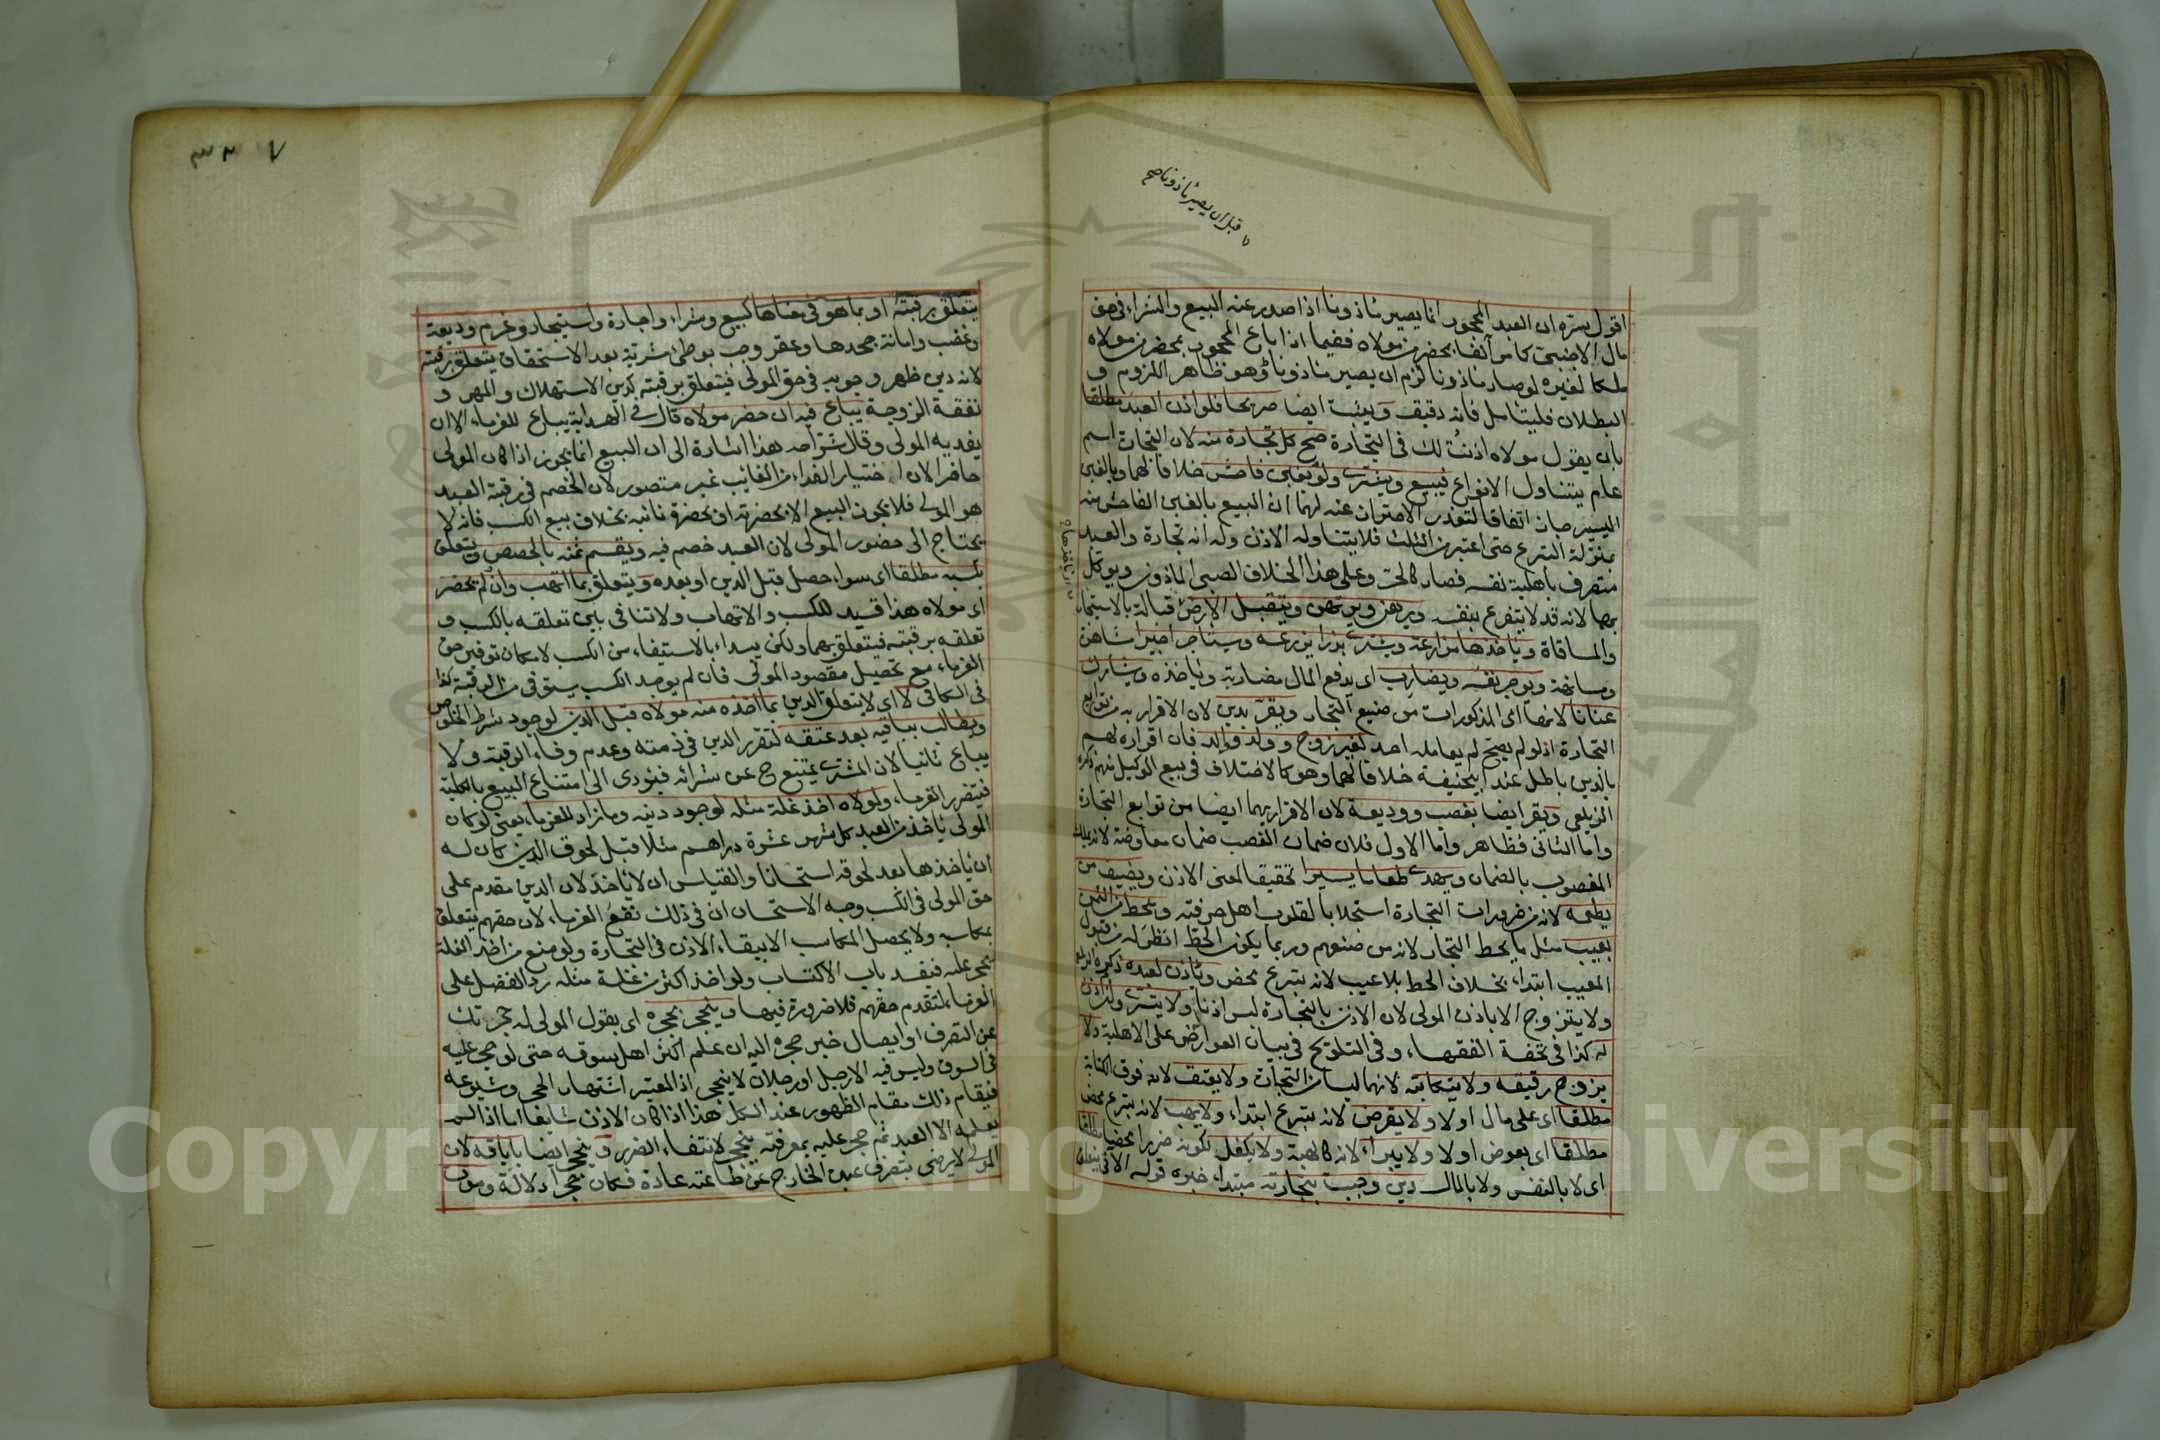 قبل ان يصير ماذونا صح
اقول سره ان العبد المحجور انما يصير ماذونا اذا صدر عنه البيع والشراء في حق
مال الاجنبي كما مر آنفا بحضرة مولاه ففيما اذا باع المحجور بمحضر من مولاه
ملكا لغيره لو صار ماذونا لزم ان يصير ماذونا وهو ظاهر اللزوم و
البطلان فليتامل فانه دقيق ويثبت ايضا صريحا فلو اذن العبد مطلقا
بان يقول مولاه اذنت لك في التجارة صح كل تجارة منه لان التجارة اسم
عام يتناول الانواع فيبيع ويشتري ولو بغبن فاحش خلافا لهما وبالغبن
اليسير جاز اتفاقا لتعذر الاحتراز عنه لهما ان البيع بالغبن الفاحش منه
بمنزلة التبرع حتى اعتبر من الثلث فلا يتناوله الاذن وله انه تجارة والعبد
متصرف باهلية نفسه فصار كالحر وعلى هذا الخلاف الصبي الماذون ويوكل
بهما لانه قد لا يتفرغ بنفسه ويرهن ويرتهن ويتقبل الارض قبالة بالاستيجار
والمساقاة وياخذها مزارعة ويشتري بذرا يزرعه ويستاجر اجيرا مشاهرة
ومسانهة ويوجر نفسه ويضارب اي يدفع المال مضاربة وياخذه ويشارك
عنانا لانها اي المذكورات من صنيع التجار ويقر بدين لان الاقرار به من توابع
التجارة اذ لو لم يصح لم يعامله احد لغير زوج وولد ووالد فان اقراره لهم
بالدين باطل عند ابي حنيفة خلافا لهما وهو كالاختلاف في بيع الوكيل منهم ذكره
الزيلعي ويقر ايضا بغصب ووديعة لان الاقرار بهما ايضا من توابع التجارة
واما الثاني فظاهر واما الاول فلان ضمان الغصب ضمان معاوضة لانه يملك
المغصوب بالضمان ويهدي طعاما يسيرا تحقيقا لمعنى الاذن ويضيف من
يطعمه لانه من ضرورات التجارة استجلابا لقلوب اهل حرفته ويحط من الثمن
بعيب مثل ما يحط التجار لانه من صنيعهم وربما يكون الحط انظر له من قبول
المعيب ابتداء بخلاف الحط بلا عيب لانه تبرع محض وياذن لعبده ذكره الزيلعي
ولا يتزوج الا باذن المولى لان الاذن بالتجارة ليس اذنا ولا يتسرى وان اذن
له كذا في تحفة الفقهاء وفي التلويح في بيان العوارض على الاهلية ولا
يزوج رقيقه ولا يكاتبه لانهما ليسا من التجارة ولا يعتق لانه فوق الكتابة
مطلقا اي على مال او لا ولا يقرض لانه تبرع ابتداء ولا يهب لانه تبرع محض
مطلقا اي بعوض او لا ولا يبراء لانه كالهبة ولا يكفل لكونه ضررا محضا مطلقا
اي لا بالنفس ولا بالمال دين وجب بتجارته مبتداء خبره قوله الآتي يتعلق
٣٢٧
يتعلق برقبته او بما هو في معناها كبيع وشراء واجارة واستيجار وغرم وديعة
وغصب وامانة جحدها وعقر وجب بوطئ مشرية بعد الاستحقاق يتعلق برقبته
لانه دين ظهر وجوبه في حق المولى فيتعلق برقبته كدين الاستهلاك والمهر و
نفقة الزوجة يباع فيه ان حضر مولاه قال في الهداية يباع للغرماء الا ان
يفديه المولى وقال شراحه هذا اشارة الى ان البيع انما يجوز اذا كان المولى
حاضرا لان اختيار الفداء من الغايب غير متصور لان الخصم في رقبة العبد
هو المولى فلا يجوز البيع الا بحضرته او بحضرة نائبه بخلاف بيع الكسب فانه لا
يحتاج الى حضور المولى لان العبد خصم فيه ويقسم ثمنه بالحصص ويتعلق
بكسبه مطلقا اي سواء حصل قبل الدين او بعده ويتعلق بما اتهب وان لم يحضر
اي مولاه هذا قيد للكسب والاتهاب ولا تنافي بين تعلقه بالكسب و
تعلقه برقبته فيتعلق بهما ولكن يبداء بالاستيفاء من الكسب لامكان توفير حق
الغرماء مع تحصيل مقصود المولى فان لم يوجد الكسب يستوفى من الرقبة كذا
في الكافي لا اي لا يتعلق الدين بما اخذه منه مولاه قبل الدين لوجود شرط الخلوص
ويطالب بباقيه بعد عتقه لتقرر الدين في ذمته وعدم وفاء الرقبة ولا
يباع ثانيا لان المشتري يمتنع ح عن شرائه فيؤدى الى امتناع البيع بالكلية
فيتضرر الغرماء ولمولاه اخذ غلة مثله لوجود دينه وما زاد للغرماء يعني لو كان
المولى ياخذ من العبد كل شهر عشرة دراهم مثلا قبل لحوق الدين كان له
ان ياخذها بعد لحوقه استحسانا والقياس ان لا ياخذ لان الدين مقدم على
حق المولى في الكسب وجه الاستحسان ان في ذلك نفع الغرماء لان حقهم يتعلق
بمكاسبه ولا يحصل المكاسب الا ببقاء الاذن في التجارة ولو منع من اخذ الغلة
يحجر عليه فينسد باب الاكتساب ولو اخذ اكثر من غلة مثله رد الفضل على
الغرماء لتقدم حقهم فلا ضرورة فيها وينحجر بحجره اي بقول المولى له حجرتك
عن التصرف او ايصال خبر حجره اليه ان علم اكثر اهل سوقه حتى لو حجر عليه
في السوق وليس فيه الا رجل او رجلان لا ينحجر اذ المعتبر اشتهار الحجر وشيوعه
فيقام ذلك مقام الظهور عند الكل هذا اذا كان الاذن شايعا اما اذا لم
يعلم به الا العبد ثم حجر عليه بمعرفته ينحجر لانتفاء الضرر وينحجر ايضا باباقه لان
المولى لا يرضى بتصرف عبده الخارج عن طاعته عادة فكان حجرا دلالة وموت
Copyright © King Saud University